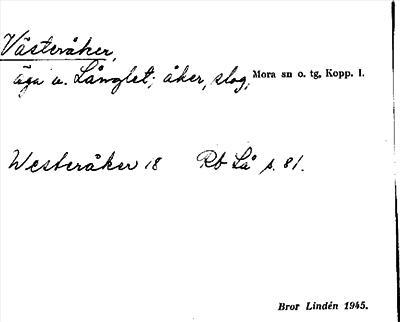 Västeråker,
äga u. Långlet; åker, slog; Mora sn o. tg, Kopp. l.
Westeråker 18 Rb Lå s. 81.
Bror Lindén 1945.